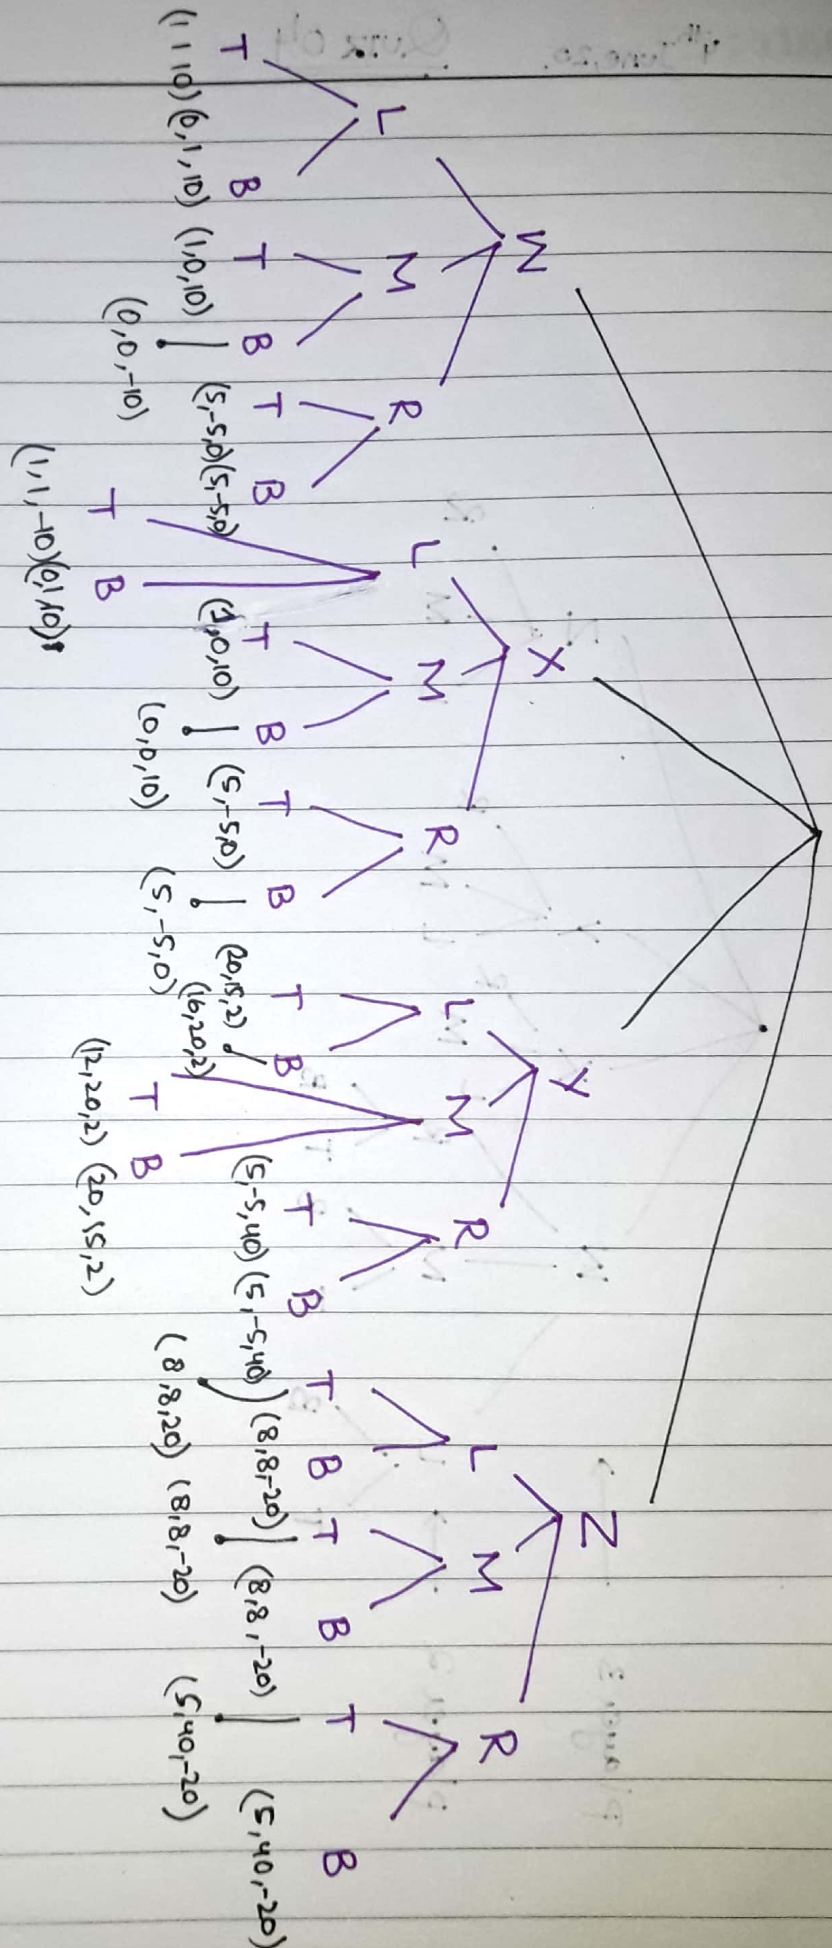 W X Y Z
L M R L M R L M R L M R
T B T B T B T B T B T B T B T B T B T B T B T B
(1 1 10) (0,1,10) (1,0,10) (0,0,-10) (5,-5,0) (5,-5,0)
(1,1,-10) (0,1,10) (1,0,10) (0,0,10) (5,-5,0) (5,-5,0)
(20,15,2) (16,20,2) (12,20,2) (20,15,2) (5,-5,40) (5,-5,40)
(8,8,20) (8,8,-20) (8,8,-20) (8,8,-20) (5,40,-20) (5,40,-20)